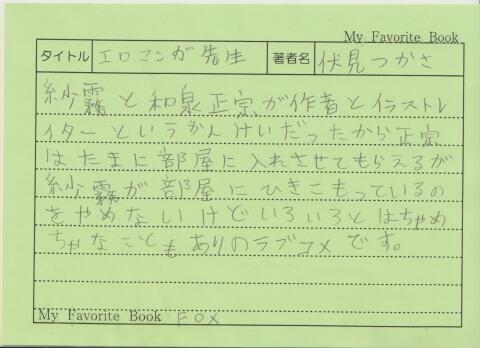 My Favorite Book
タイトル エロマンガ先生 著者名 伏見つかさ
紗霧と和泉正宗が作者とイラストレ
イターというかんけいだったから正宗
はたまに部屋に入れさせてもらえるが
紗霧が部屋にひきこもっているの
をやめないけどいろいろとはちゃめ
ちゃなこともありのラブコメです。
My Favorite Book FOX